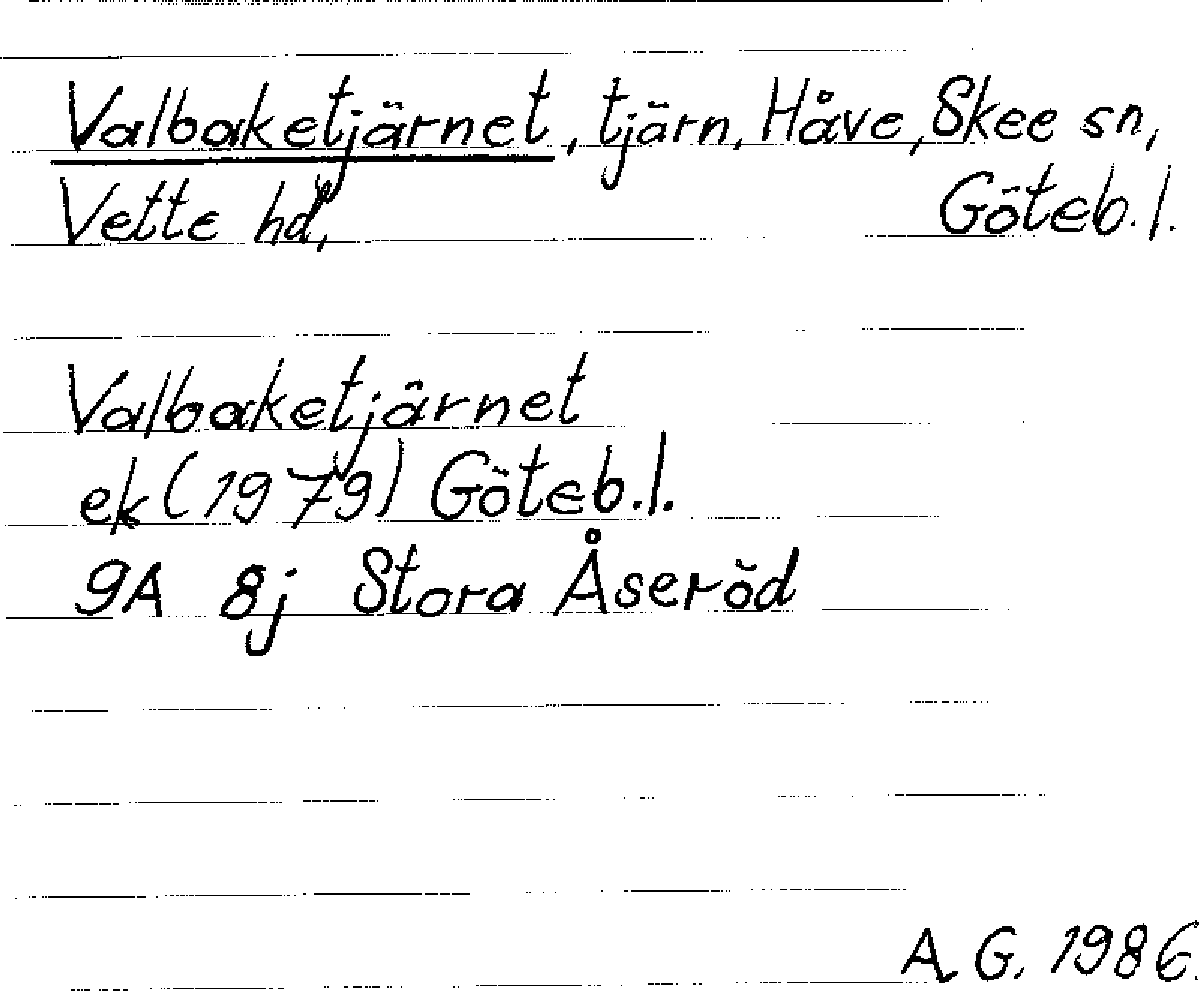 Valbaketjärnet, tjärn, Håve, Skee sn,
Vette hd, Göteb. l.
Valbaketjärnet
ek (1979) Göteb. l.
9A 8j Stora Åseröd
A.G. 1986.